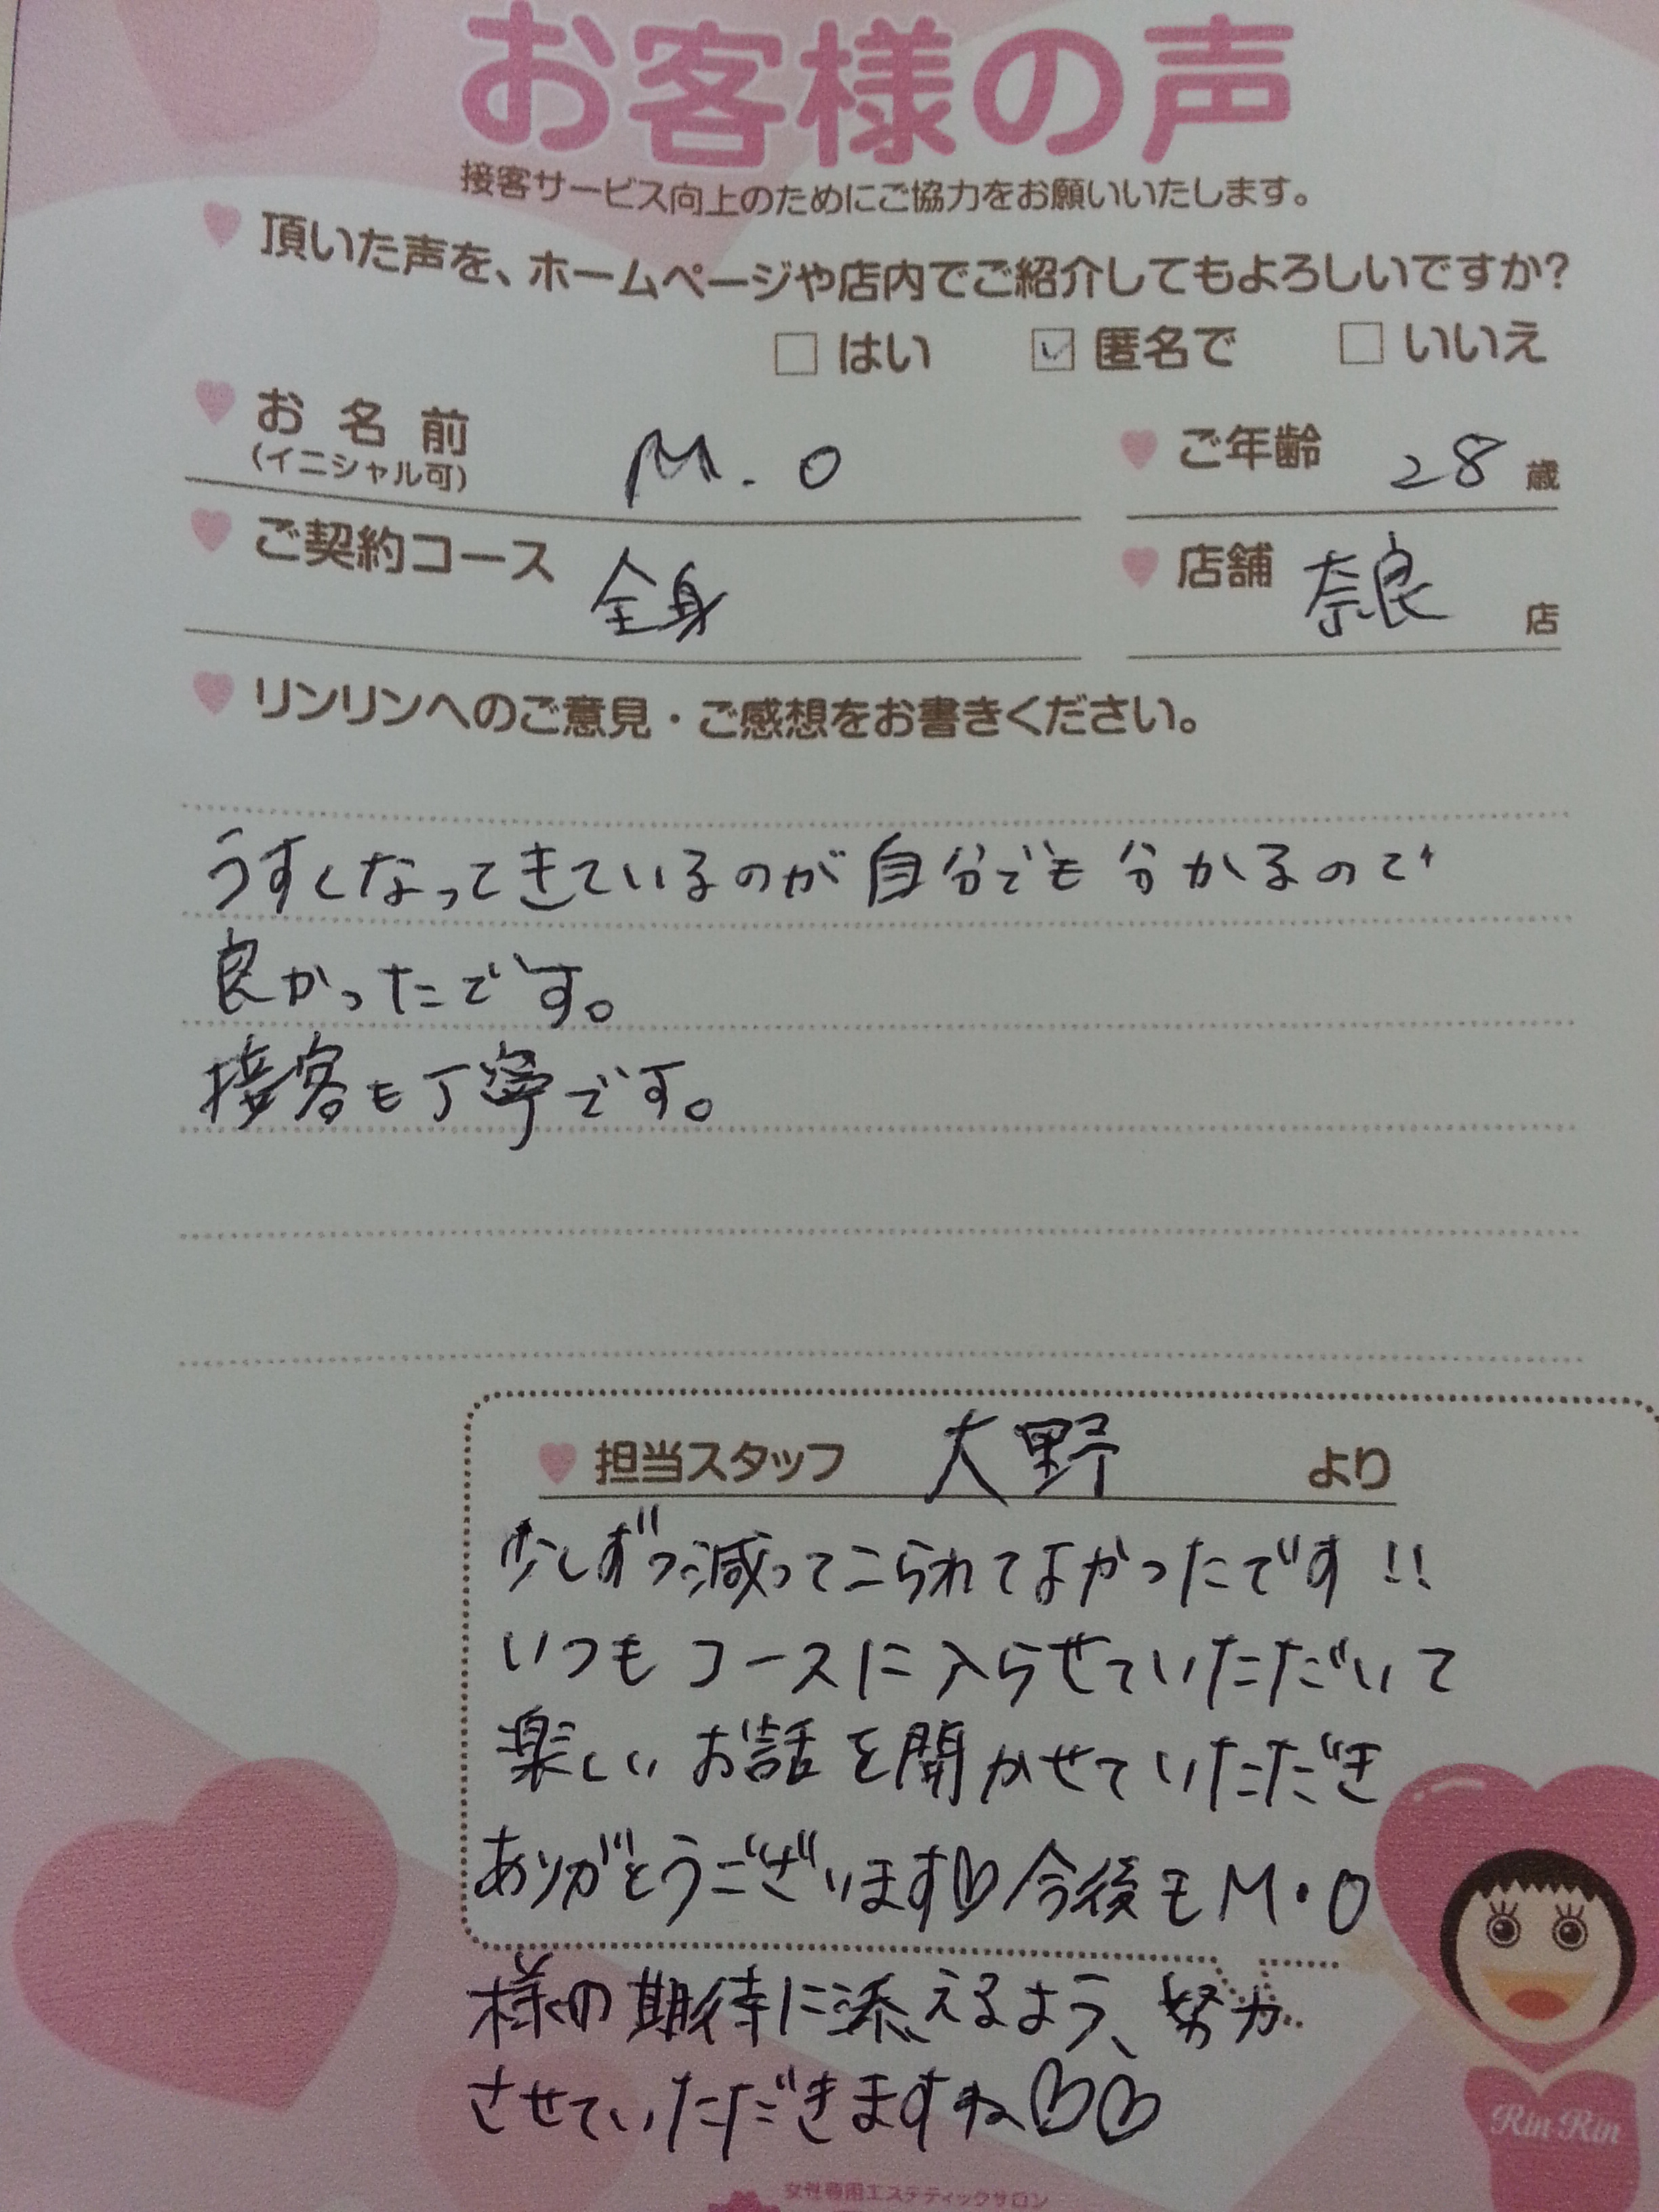 お客様の声
接客サービス向上のためにご協力をお願いいたします。
頂いた声を、ホームページや店内でご紹介してもよろしいですか?
はい 匿名で いいえ
お名前 M.O ご年齢 28 歳
(イニシャル可)
ご契約コース 全身 店舗 奈良 店
リンリンへのご意見・ご感想をお書きください。
うすくなってきているのが自分でも分かるので
良かったです。
接客も丁寧です。
担当スタッフ 大野 より
少しずつ減ってこられてよかったです!!
いつもコースに入らせていただいて
楽しいお話を聞かせていただき
ありがとうございます♡今後もM・O
様の期待に添えるよう、努力
させていただきますね♡♡
Rin Rin
女性専用エステティックサロン